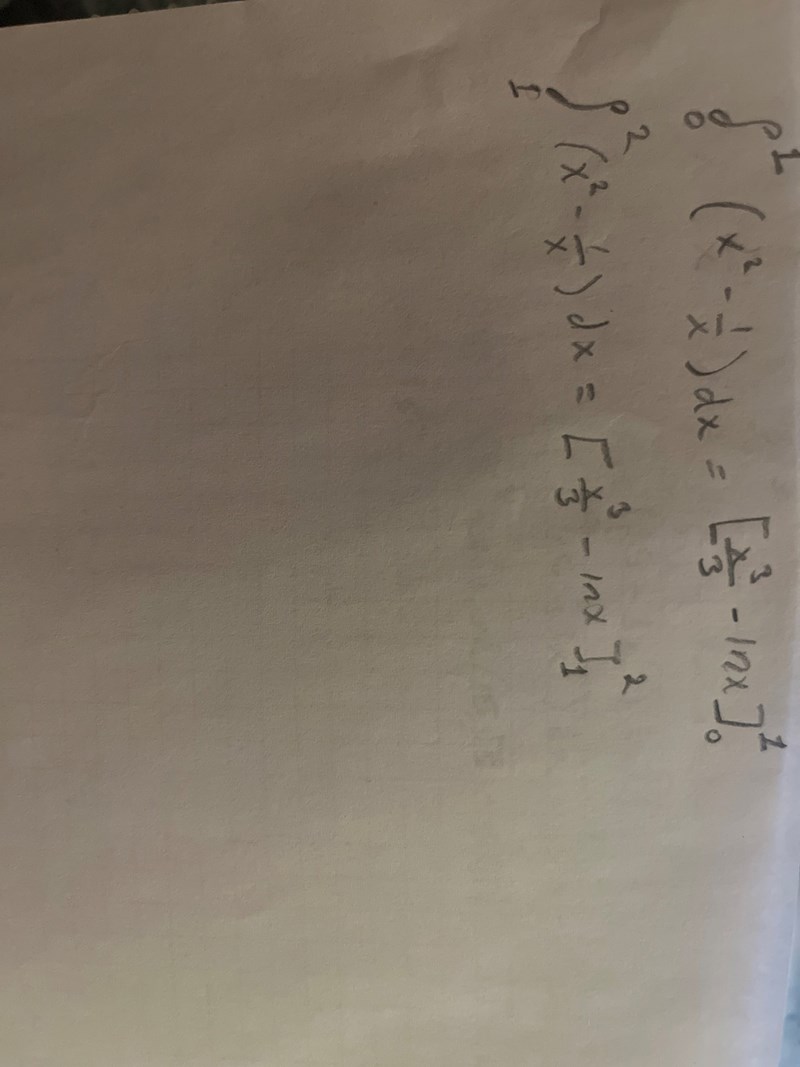 ₀∫¹ (x² - 1/x) dx = [x³/3 - lnx]₀¹
₁∫² (x² - 1/x) dx = [x³/3 - lnx]₁²